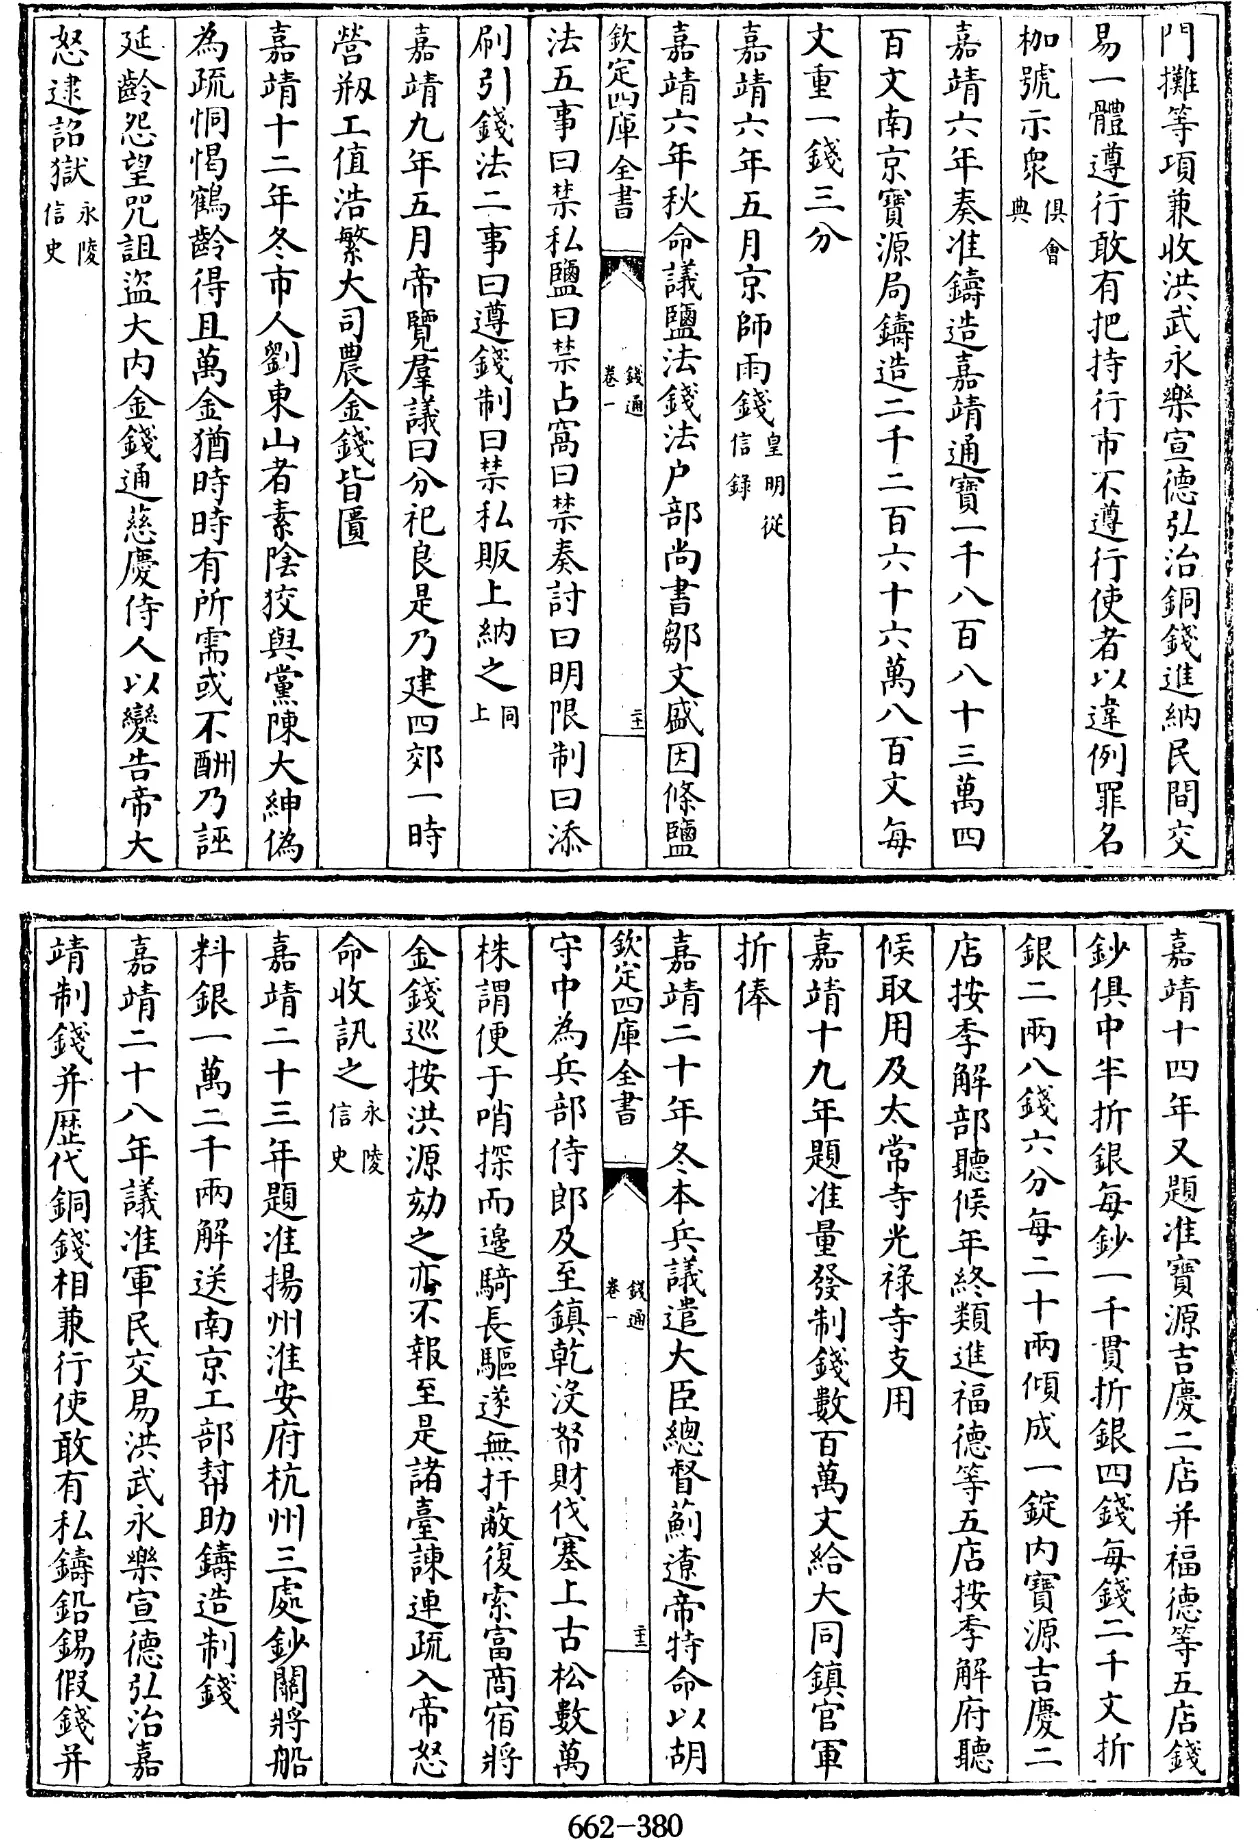 門攤等項兼收洪武永樂宣德弘治銅錢進納民間交
易一體遵行敢有把持行市不遵行使者以違例罪名
枷號示衆俱會典
嘉靖六年奏准鑄造嘉靖通寶一千八百八十三萬四
百文南京寶源局鑄造二千二百六十六萬八百文每
文重一錢三分
嘉靖六年五月京師雨錢皇明從信錄
嘉靖六年秋命議鹽法錢法户部尚書鄒文盛因條鹽
欽定四庫全書 錢通卷一 二十一
法五事曰禁私鹽曰禁占窩曰禁奏討曰明限制曰添
刷引錢法二事曰遵錢制曰禁私販上納之同上
嘉靖九年五月帝覽羣議曰分祀良是乃建四郊一時
營剏工值浩繁大司農金錢皆匱
嘉靖十二年冬市人劉東山者素陰狡與黨陳大紳偽
為疏恫愒鶴齡得且萬金猶時時有所需或不酬乃誣
延齡怨望咒詛盜大内金錢通慈慶侍人以變告帝大
怒逮詔獄永陵信史
嘉靖十四年又題准寶源吉慶二店并福德等五店錢
鈔俱中半折銀每鈔一千貫折銀四錢每錢二千文折
銀二兩八錢六分每二十兩傾成一錠内寶源吉慶二
店按季解部聽候年終類進福德等五店按季解府聽
候取用及太常寺光祿寺支用
嘉靖十九年題准量發制錢數百萬文給大同鎮官軍
折俸
嘉靖二十年冬本兵議遣大臣總督薊遼帝特命以胡
欽定四庫全書 錢通卷一 二十二
守中為兵部侍郎及至鎮乾没帑財伐塞上古松數萬
株謂便于哨探而邊騎長驅遂無扞蔽復索富商宿將
金錢巡按洪源劾之亦不報至是諸臺諫連疏入帝怒
命收訊之永陵信史
嘉靖二十三年題准揚州淮安府杭州三處鈔關將船
料銀一萬二千兩解送南京工部幇助鑄造制錢
嘉靖二十八年議准軍民交易洪武永樂宣德弘治嘉
靖制錢并歷代銅錢相兼行使敢有私鑄鉛錫假錢并
662-380